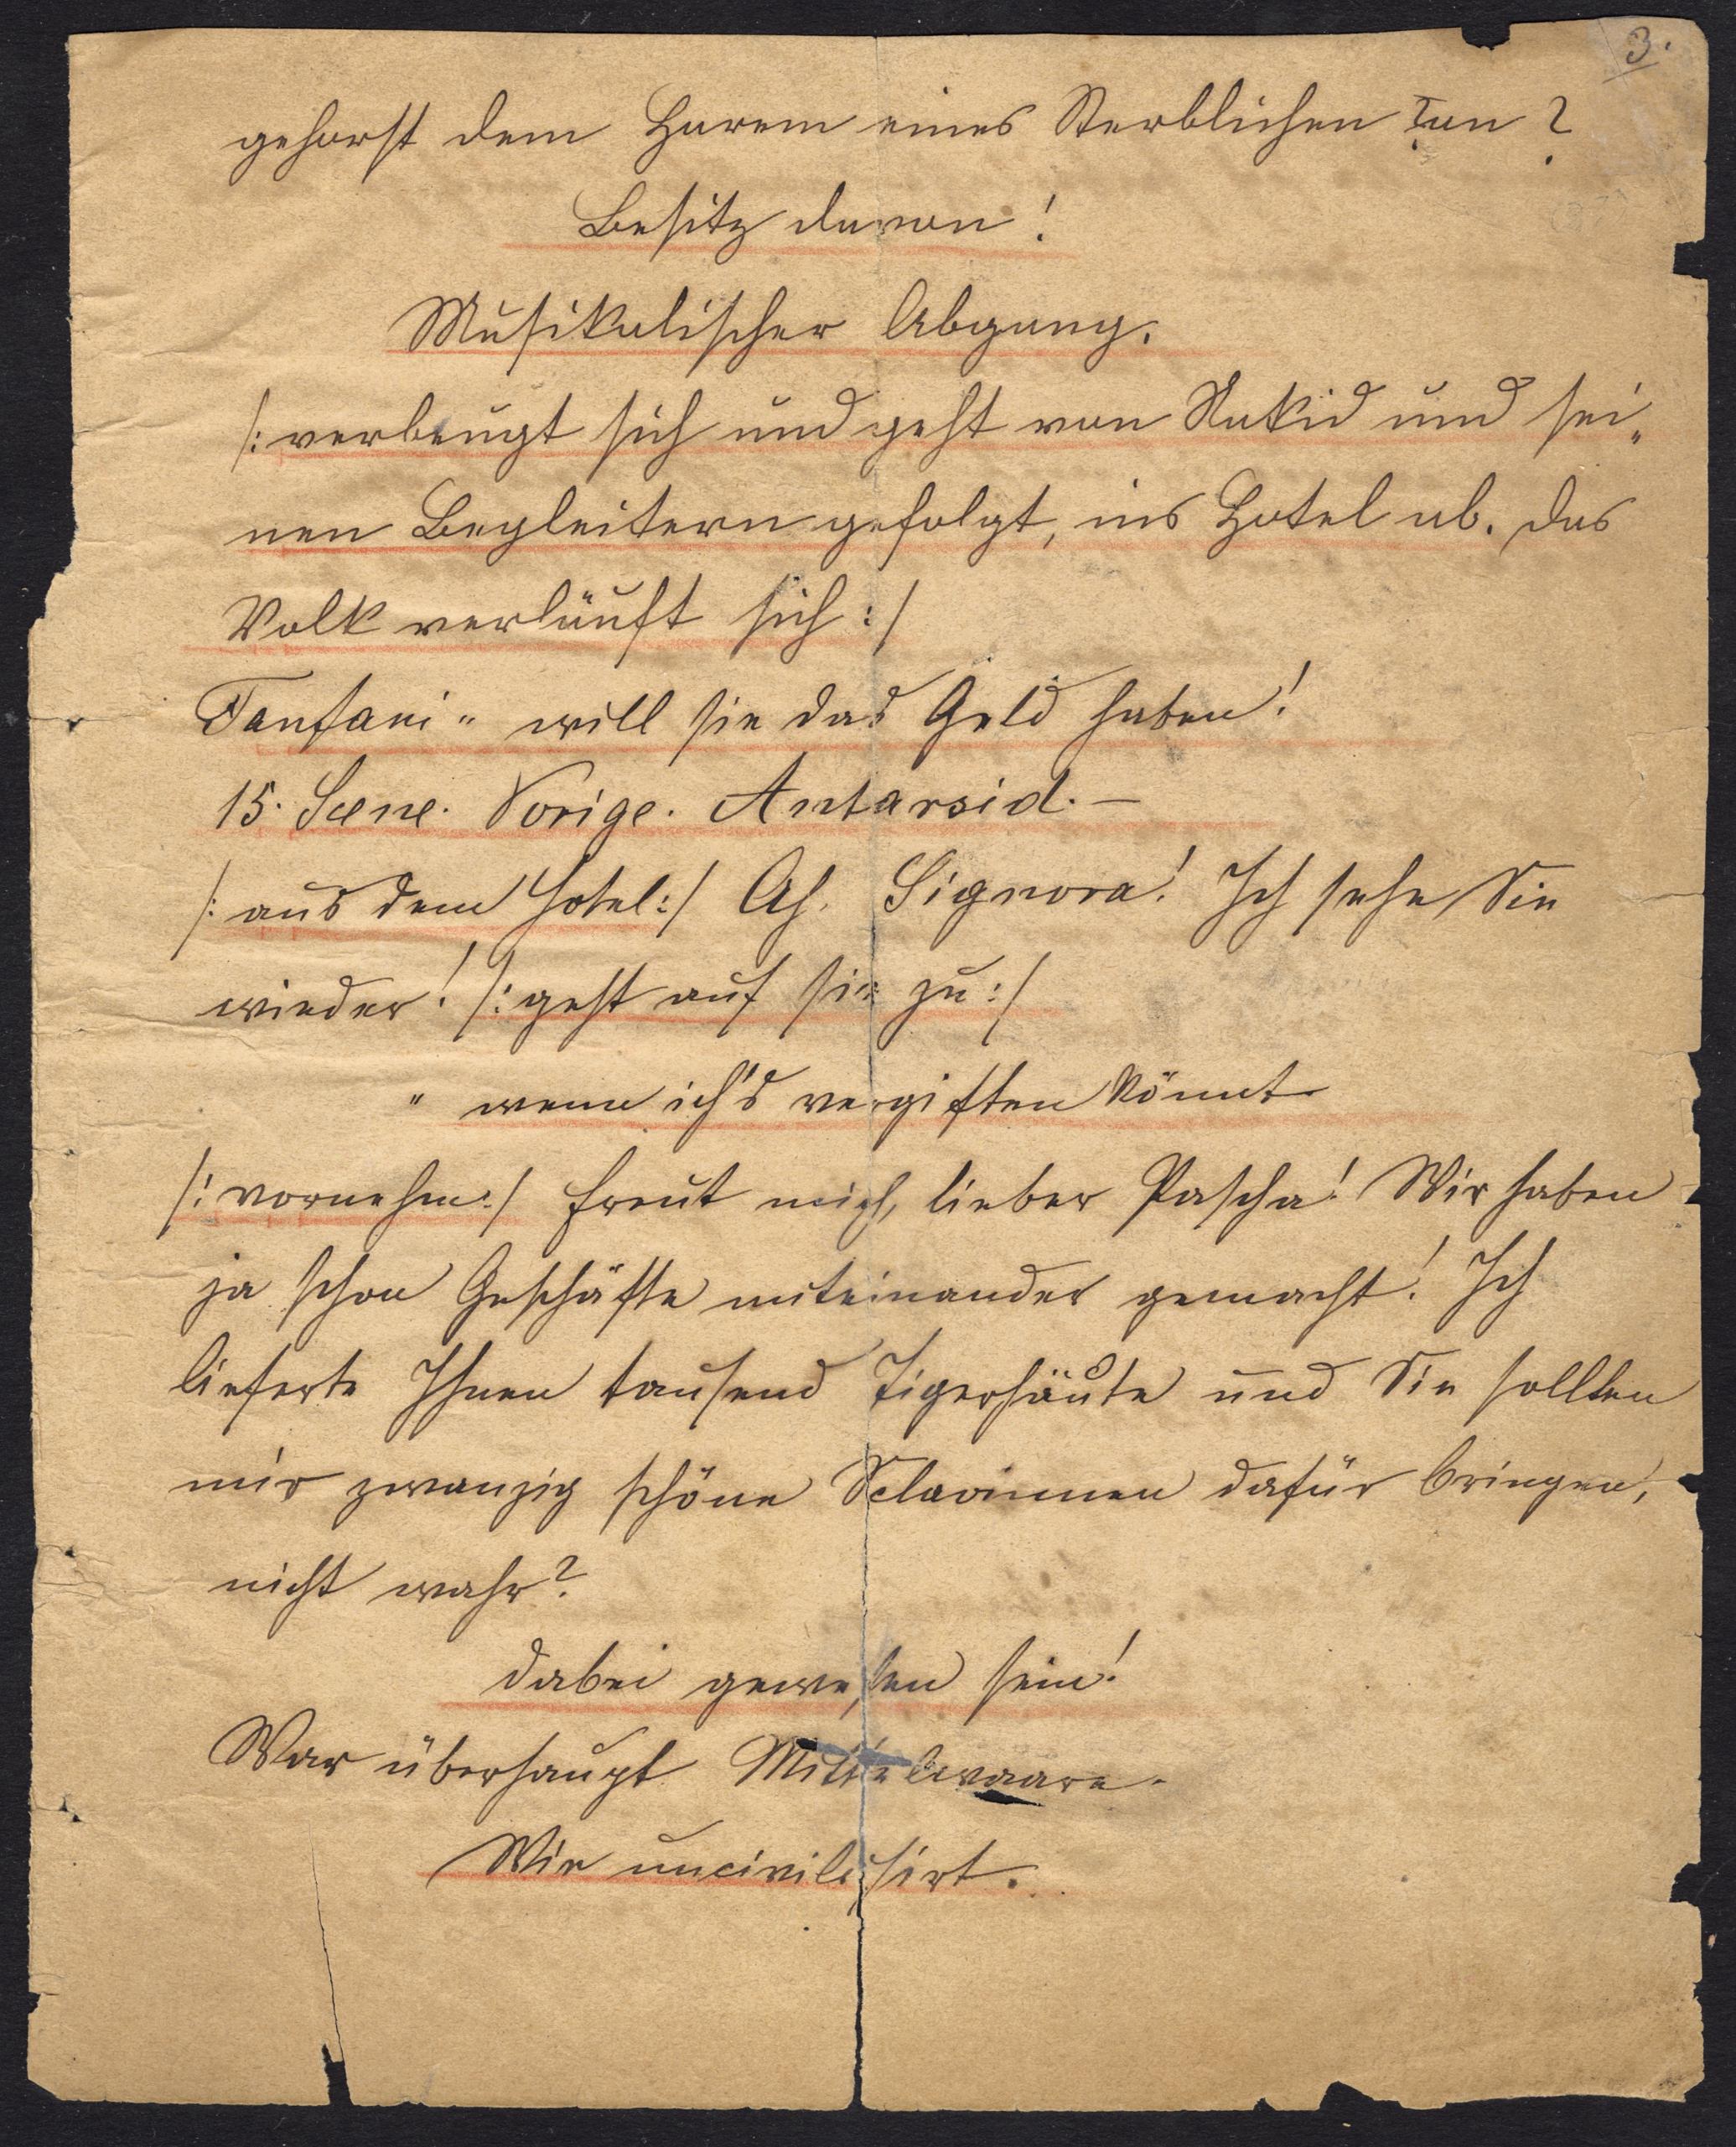 3.
gehörst dem Harem eines Sterblichen an?
Besitz davon!
Musikalischer Abgang.
/: verbeugt sich und geht von Nakid und sei„
nen Begleitern gefolgt, ins Hotel ab. Das
Volk verläuft sich :/
Fanfani „ will sie das Geld haben!
15. Scene. Vorige. Antarsid. —
/: aus dem Hotel :/ Ah, Signora! Ich sehe Sie
wieder! /: geht auf sie zu :/
„ wenn ich's vergiften könnt
/: vornehm :/ Freut mich, lieber Pascha! Wir haben
ja schon Geschäfte miteinander gemacht! Ich
lieferte Ihnen tausend Tigerhäute und Sie sollten
mir zwanzig schöne Sclavinnen dafür bringen,
nicht wahr?
dabei gewesen sein!
War überhaupt Mittelwaare.
Wie uncivilisirt.